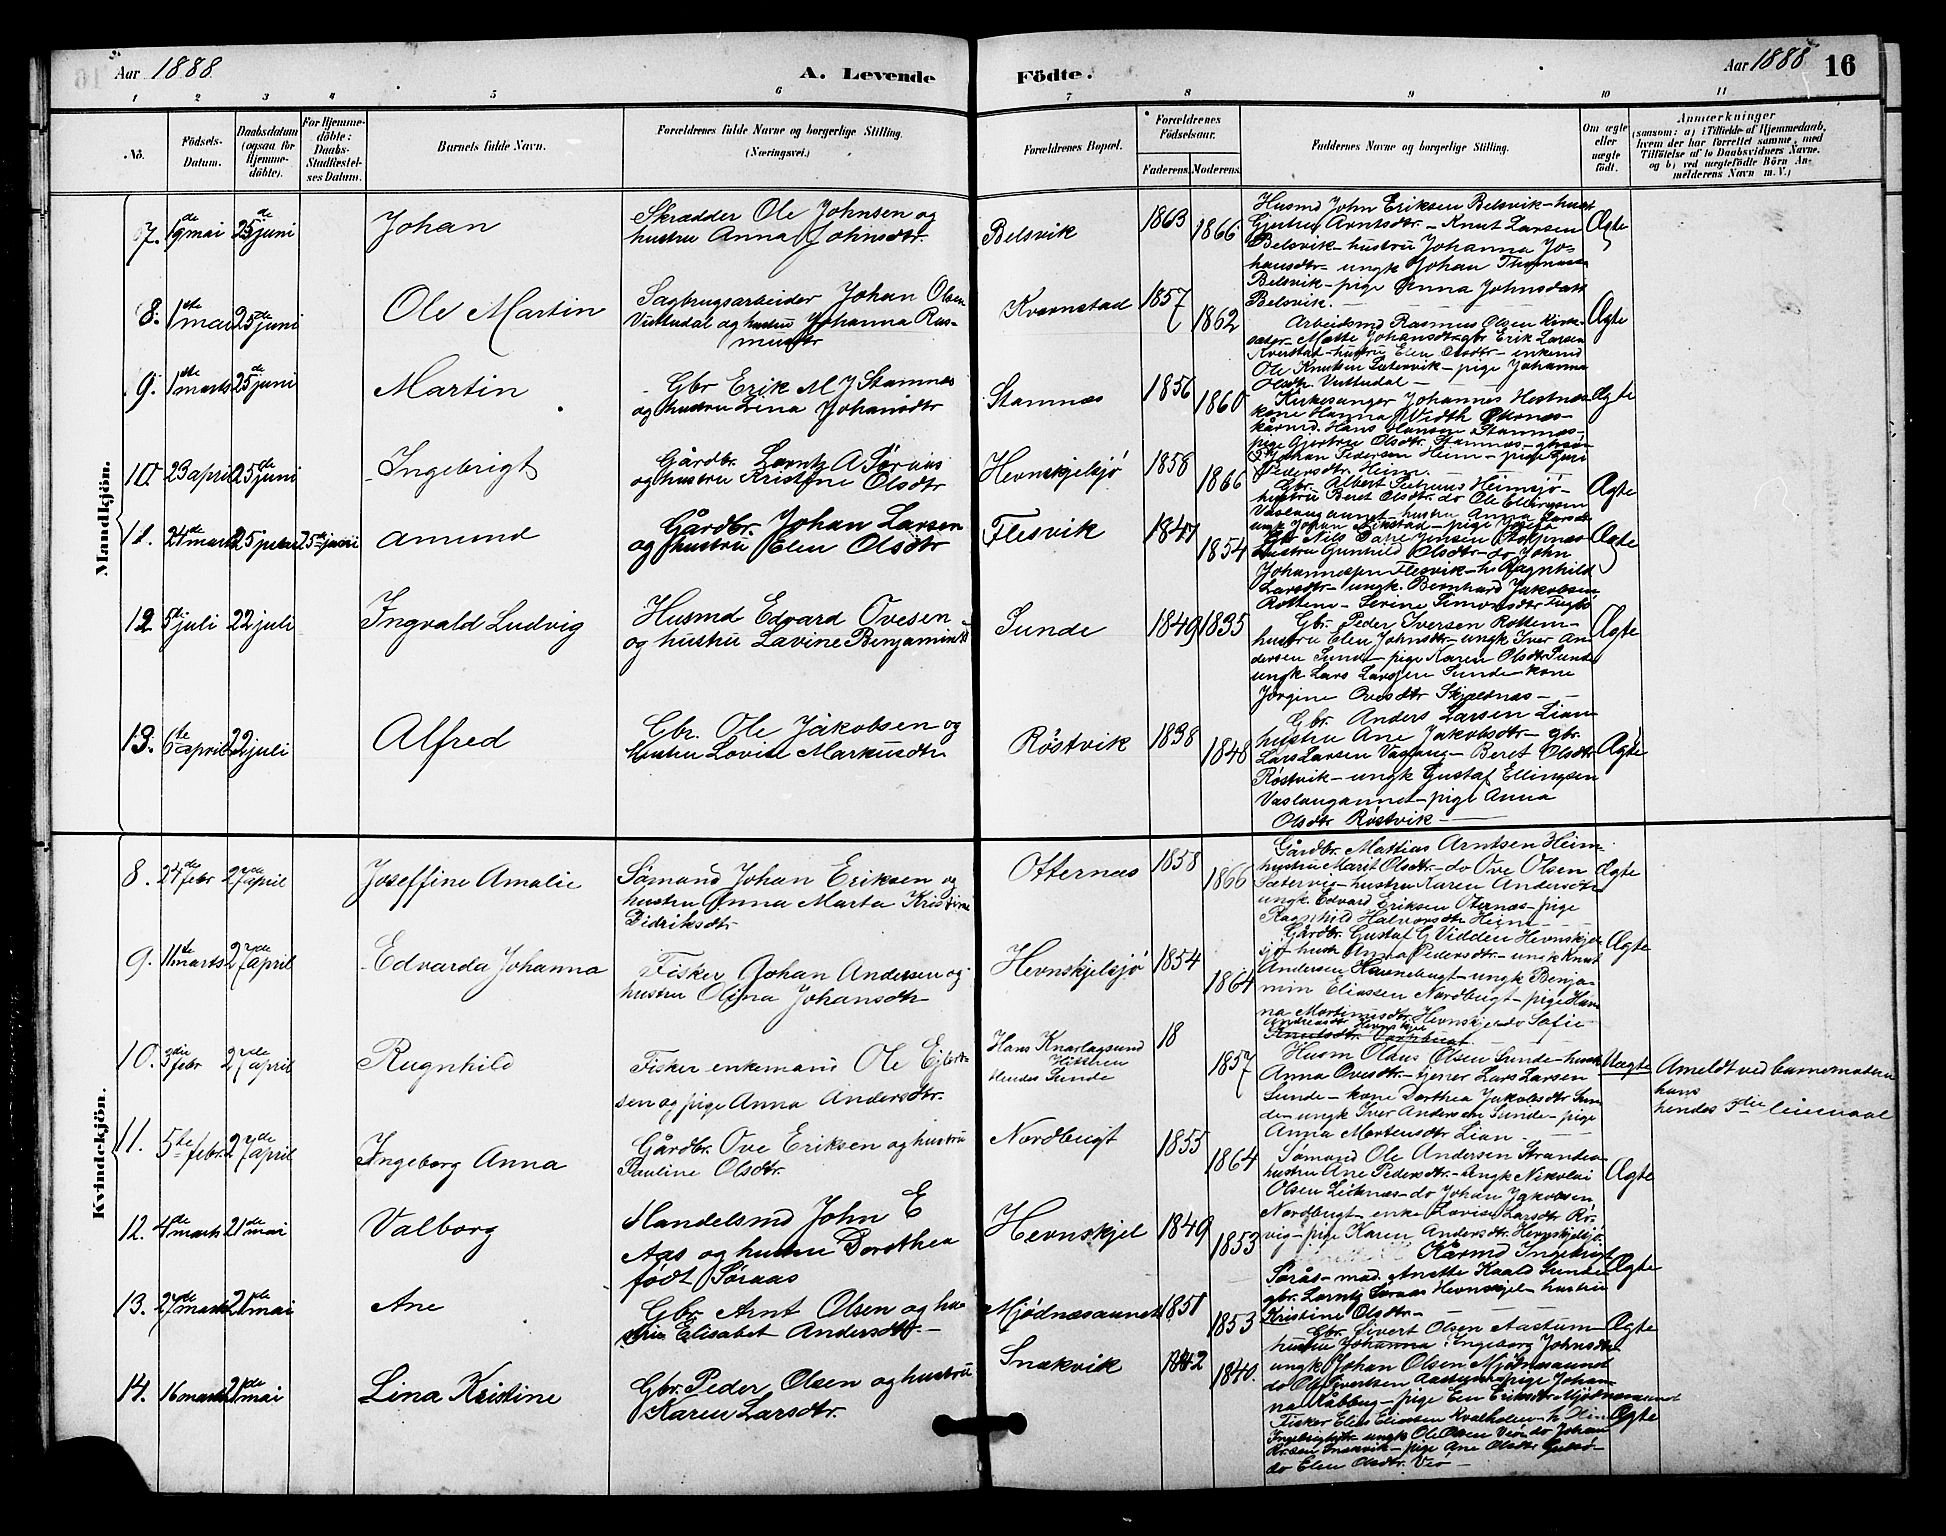 Aar 1888
A. Levende
Födte.
Aar 1888
16
1 2 3 4 5 6 7 8 9 10 11
No.
Födsels-Datum.
Daabsdatum (ogsaa for Hjemme-döbte).
For Hjemme-döbte: Daabs-Stadfæstel-ses Datum.
Barnets fulde Navn.
Forældrenes fulde Navne og borgerlige Stilling.
(Næringsvei.)
Forældrenes Bopæl.
Forældrenes Födselsaar.
Faderens. Moderens.
Faddernes Navne og borgerlige Stilling.
Om ægte eller uægte födt.
Anmærkninger
(saasom: a) i Tilfælde af Hjemmedaab, hvem der har forrettet samme, med Tilföielse af to Daabsvidners Navne, og b) ved uægtefödte Börn Anmelderens Navn m. V.)
Mandkjön.
7. 19de mai 25de juni Johan
Skrædder Ole Johnsen og
hustru Anna Johnsdtr.
Belsvik 1863 1866
Husmd John Eriksen Belsvik – hust
Gjertru Arntsdtr. – Knut Larsen
Belsvik – hustru Johanna Jo-
hansdtr – ungk Johan Thomasen
Belsvik – pige Anna Johnsdatt
Belsvik.
Ægte
8. 1ste mai 25de juni Ole Martin
Sagbrugsarbeider Johan Olsen
Vuttudal og hustru Johanna Ras-
musdtr
Kvernstad 1857 1862
Arbeidsmd Rasmus Olsen Kirk-
sæter – Mette Johansdtr – gbr Erik Larsen
Kverstad – hustru Elen Olsdtr – enkemd
Ole Knutsen Sætervik – pige Johanna
Olsdtr. Vuttudal –
Ægte
9. 1ste marts 25de juni Martin
Gbr Erik M J Stamnæs
og hustru Lina Johansdtr
Stamnæs 1856 1860
Kirkesanger Johannes Hestnæs
kone Hanna Vedth Otternæs –
kårmd. Hans Hansen Stamnæs –
pige Gjertru Olsdtr. Stamnæs – gbrsøn
Johan Pedersen Heim – pige Guri
Pedersdtr. Heim.
Ægte
10. 23 april 25de juni Ingebrigt
Gårdbr. Lorntz A Søraas
og hustru Kristine Olsdtr
Hevnskjelsjø 1858 1866
Gbr. Albert Petrus Heimsjø –
hustru Beret Olsdtr. do Ole Ellingsen
Vaslaugaunet – hustru Anna Larsdtr
Ægte
11. 24de marts 25 juni 25de juni Amund
Gårdbr. Johan Larsen
og hustru Elen Olsdtr
Flesvik 1847 1854
hustru Gunhild Olsdtr – do John
Johannesen Flesvik – h. Ragnhild
Larsdtr – ungk. Bernhard Jakobsen
Rottem – Serine Simonsdtr
Ægte
12 5te juli 22 juli Ingvald Ludvig
Husmd Edvard Ovesen
og hustru Lavine Benjaminsd
Sunde 1849 1835
Gbr. Peder Iversen Rottem –
hustru Elen Johnsdtr – ungk Iver An-
dersen Sunde – pige Karen Olsdtr Sunde
ungk Lars Larssen Sunde – kone
Jørgine Ovesdtr Skjeldnæs –
Ægte
13. 6te april 22 juli Alfred
Gbr. Ole Jakobsen og
Hustru Lovise Markusdtr
Røstvik 1838 1848
Gbr. Anders Larsen Lian
hustru Ane Jakobsdtr – gbr.
Lars Larsen Vaslaug – Beret Olsdtr
Røstvik – ungk Gustaf Ellingsen
Vaslaugaunet – pige Anna
Olsdtr Røstvik –
Ægte
Kvindekjön.
8. 24de febr 27de april Joseffine Amalie
Sømand Johan Eriksen og
hustru Anna Marta Kristine
Fidriksdtr
Otternæs 1858 1866
Gårdbr. Mattias Arntsen Heim
hustru Marit Olsdtr – do Ove Olsen
Sætervig – hustru Karen Andersdtr
ungk Edvard Eriksen Oternæs – pige
Ragnhild Halvorsdtr Heim –
Ægte
9. 11te marts 27de april Edvarda Johanna
Fisker Johan Andersen og
hustru Olina Johansdtr
Hevnskjelsjø 1854 1864
Gårdbr. Gustaf G Vidden Hevnskjel-
sjø hustr Anna Pedersdtr – ungk Knut
Andersen Havnebugt – ungk Benja-
min Eliassen Nordbugt – pige Han-
na Mortensdtr. Hevnskjel do Sofie
Andreasdtr Hevnskjel
Knutsdtr. Nordbugt
Ægte
10. 3die febr 27de april Ragnhild
Fisker enkemand Ole Ejlert-
sen og pige Anna Andersdtr.
Hans Knarlagsund
Hitteren
Hendes Sunde
18 1857
Husm Olaus Olsen Sunde – hustr
Anna Ovesdtr. – tjener Lars Larsen
Sunde – kone Dorthea Jakobsdtr Sun-
de – ungk Iver Andersen Sunde – pige
Anna Mortensdtr Lian –
Uægte
Anmeldt ved barnemoderen
hans
hendes 3die leiermaal
11. 5te febr. 27de april Ingeborg Anna
Gårdbr. Ove Eriksen og hustru
Pauline Olsdtr.
Nordbugt 1855 1864
Sømand Ole Andersen Stranden
hustru Ane Pedersdtr. – Ungk Nikolai
Olsen Leknæs – do Johan Jakobsen
Nordbugt – enke Lovise Larsdtr Rø-
vig – pige Karen Andersdtr. Hevnskjelsjø.
Ægte
12. 4de marts 21de mai Valborg
Handelsmd John E
Aas og hustru Dorothea
født Søraas
Hevnskjel 1849 1853
Kårmd Ingebrigt
Sørås – mad. Anette Kaald Sunde
gbr. Lorntz Søraas Hevnskjel – hustru
Kristine Olsdtr –
Ægte
13. 27de marts 21de mai Ane
Gbr Arnt Olsen og hu-
stru Elisabet Andersdtr. –
Mjødnæsaunet 1851 1853
Gbr. Sivert Olsen Aastum
hustru Johanna. Ingeborg Johnsdtr
ungk Johan Olsen Mjødnesaunet
do Ole Sivertsen Aastum – pige Johan-
na Råbbug – pige Eli Eriksdtr Mjødnesaunet
Ægte
14. 16 marts 21de mai Lina Kristine
Gbr. Peder Olsen og hustru
Karen Larsdtr.
Snekvik 1842 1840.
Fisker Elias Eliasen Kvalholm – h
Ingebrigtsdtr – ungk Ole Olsen Veiø do Johan
Snekvik – pige Ane Olsdtr
do Elen Olsdtr. Veiø –
Ægte